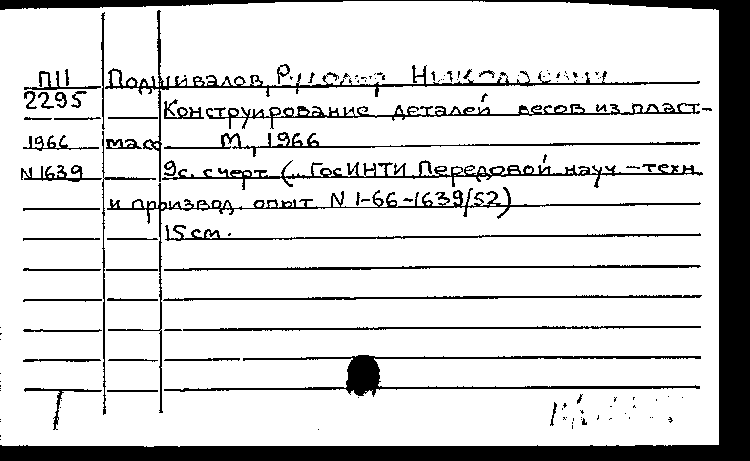 П11 Подшивалов, Рудольф Николаевич
2295 Конструирование деталей весов из пласт-
1966 масс М., 1966
N 1639 9с. с черт (... ГосИНТИ Передовой науч.-техн.
и производ. опыт N 1-66-1639/52)
15 см.